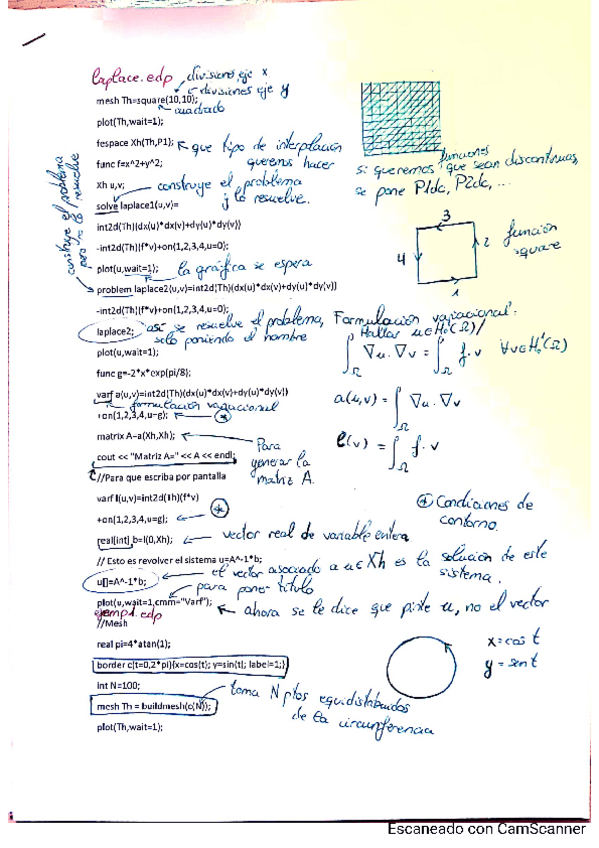 laplace.edp
divisiones eje x
divisiones eje y
mesh Th=square(10,10);
cuadrado
plot(Th,wait=1);
fespace Xh(Th,P1);
que tipo de interpolación
queremos hacer
func f=x^2+y^2;
funciones
si queremos que sean discontinuas,
se pone P1dc, P2dc, ...
Xh u,v;
construye el problema
y lo resuelve.
solve laplace1(u,v)=
int2d(Th)(dx(u)*dx(v)+dy(u)*dy(v))
-int2d(Th)(f*v)+on(1,2,3,4,u=0);
3
4
2
1
función
square
plot(u,wait=1);
la gráfica se espera
construye el problema
pero no lo resuelve
problem laplace2(u,v)=int2d(Th)(dx(u)*dx(v)+dy(u)*dy(v))
-int2d(Th)(f*v)+on(1,2,3,4,u=0);
laplace2;
así se resuelve el problema,
solo poniendo el nombre
Formulación variacional:
Hallar u∈H₀¹(Ω)/
∫_Ω ∇u·∇v = ∫_Ω f·v ∀v∈H₀¹(Ω)
plot(u,wait=1);
func g=-2*x*exp(pi/8);
varf a(u,v)=int2d(Th)(dx(u)*dx(v)+dy(u)*dy(v))
formulación variacional
+on(1,2,3,4,u=g);
*
a(u,v) = ∫_Ω ∇u·∇v
matrix A=a(Xh,Xh);
Para
generar la
matriz A.
l(v) = ∫_Ω f·v
cout << "Matriz A=" << A << endl;
//Para que escriba por pantalla
varf l(u,v)=int2d(Th)(f*v)
+on(1,2,3,4,u=g);
*
* Condiciones de
contorno.
real[int] b=l(0,Xh);
vector real de variable entera
// Esto es revolver el sistema u=A^-1*b;
u[]=A^-1*b;
el vector asociado a u∈Xh es la solución de este
sistema.
para poner título
plot(u,wait=1,cmm="Varf");
ahora se le dice que pinte u, no el vector
ejemp1.edp
//Mesh
real pi=4*atan(1);
border c(t=0,2*pi){x=cos(t); y=sin(t); label=1;}
x=cos t
y=sen t
int N=100;
mesh Th = buildmesh(c(N));
toma N ptos equidistribuidos
de la circunferencia
plot(Th,wait=1);
Escaneado con CamScanner